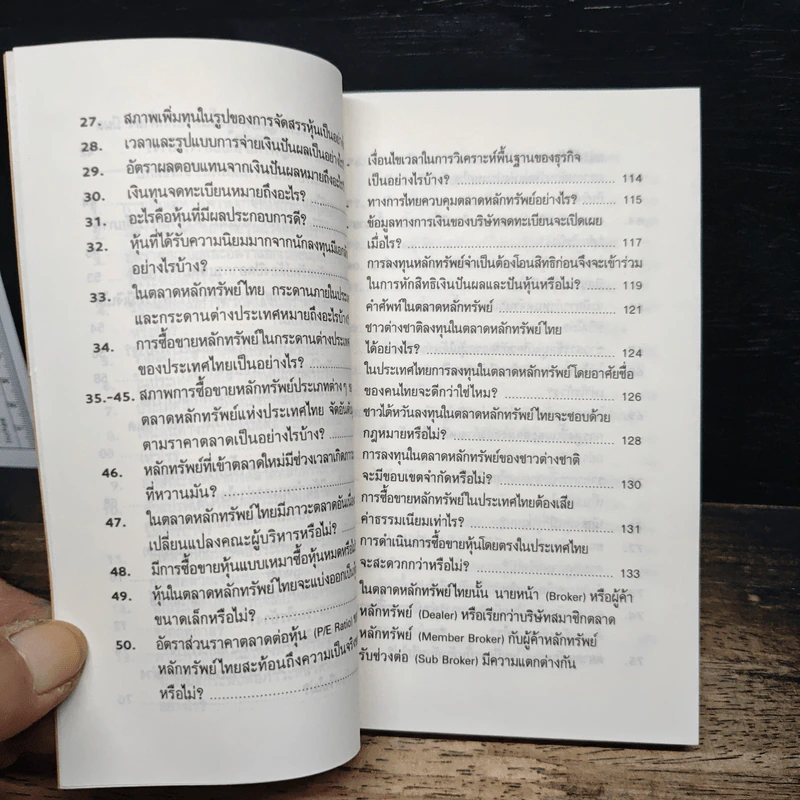 27. สภาพเพิ่มทุนในรูปของการจัดสรรหุ้นเป็นอย่าง
28. เวลาและรูปแบบการจ่ายเงินปันผลเป็นอย่างไร?
29. อัตราผลตอบแทนจากเงินปันผลหมายถึงอะไร?
30. เงินทุนจดทะเบียนหมายถึงอะไร?
31. อะไรคือหุ้นที่มีผลประกอบการดี?
32. หุ้นที่ได้รับความนิยมมากจากนักลงทุนมี
อย่างไรบ้าง?
33. ในตลาดหลักทรัพย์ไทย กระดานภายใน
และกระดานต่างประเทศหมายถึงอะไร
34. การซื้อขายหลักทรัพย์ในกระดานต่างประเทศ
ของประเทศไทยเป็นอย่างไร?
35.-45. สภาพการซื้อขายหลักทรัพย์ประเภทต่างๆ
ตลาดหลักทรัพย์แห่งประเทศไทย จัดอันดับ
ตามราคาตลาดเป็นอย่างไรบ้าง?
46. หลักทรัพย์ที่เข้าตลาดใหม่มีช่วงเวลาเกิด
ที่หวานมัน?
47. ในตลาดหลักทรัพย์ไทยมีภาวะตลาดอัน
เปลี่ยนแปลงคณะผู้บริหารหรือไม่?
48. มีการซื้อขายหุ้นแบบเหมาซื้อหุ้นหมดหรือ
49. หุ้นในตลาดหลักทรัพย์ไทยจะแบ่งออกเป็น
ขนาดเล็กหรือไม่?
50. อัตราส่วนราคาตลาดต่อหุ้น (P/E Ratio)
หลักทรัพย์ไทยสะท้อนถึงความเป็นจริง
หรือไม่?
เงื่อนไขเวลาในการวิเคราะห์พื้นฐานของธุรกิจ
เป็นอย่างไรบ้าง? 114
ทางการไทยควบคุมตลาดหลักทรัพย์อย่างไร? 115
ข้อมูลทางการเงินของบริษัทจดทะเบียนจะเปิดเผย
เมื่อไร? 117
การลงทุนหลักทรัพย์จำเป็นต้องโอนสิทธิก่อนจึงจะเข้าร่วม
ในการหักสิทธิเงินปันผลและปันหุ้นหรือไม่? 119
คำศัพท์ในตลาดหลักทรัพย์ 121
ชาวต่างชาติลงทุนในตลาดหลักทรัพย์ไทย
ได้อย่างไร? 124
ในประเทศไทยการลงทุนในตลาดหลักทรัพย์โดยอาศัยชื่อ
ของคนไทยจะดีกว่าใช่ไหม? 126
ชาวไต้หวันลงทุนในตลาดหลักทรัพย์ไทยจะชอบด้วย
กฎหมายหรือไม่? 128
การลงทุนในตลาดหลักทรัพย์ของชาวต่างชาติ
จะมีขอบเขตจำกัดหรือไม่? 130
การซื้อขายหลักทรัพย์ในประเทศไทยต้องเสีย
ค่าธรรมเนียมเท่าไร? 131
การดำเนินการซื้อขายหุ้นโดยตรงในประเทศไทย
จะสะดวกกว่าหรือไม่? 133
ในตลาดหลักทรัพย์ไทยนั้น นายหน้า (Broker) หรือผู้ค้า
หลักทรัพย์ (Dealer) หรือเรียกว่าบริษัทสมาชิกตลาด
หลักทรัพย์ (Member Broker) กับผู้ค้าหลักทรัพย์
รับช่วงต่อ (Sub Broker) มีความแตกต่างกัน